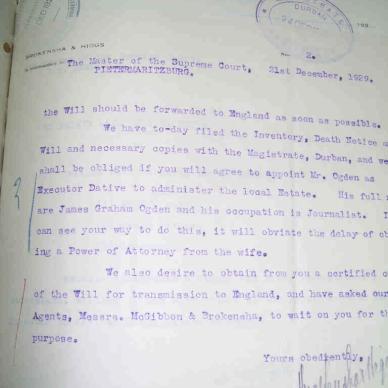 DURBAN
193
BROKENSHA & HIGGS
2.
The Master of the Supreme Court,
PIETERMARITZBURG.
21st December, 1929.
the Will should be forwarded to England as soon as possible.
We have to-day filed the Inventory, Death Notice
Will and necessary copies with the Magistrate, Durban, and we
shall be obliged if you will agree to appoint Mr. Ogden as
Executor Dative to administer the local Estate. His full
are James Graham Ogden and his occupation is Journalist.
can see your way to do this, it will obviate the delay of
ing a Power of Attorney from the wife.
We also desire to obtain from you a certified
of the Will for transmission to England, and have asked our
Agents, Messrs. McGibbon & Brokensha, to wait on you for
purpose.
Yours obediently,